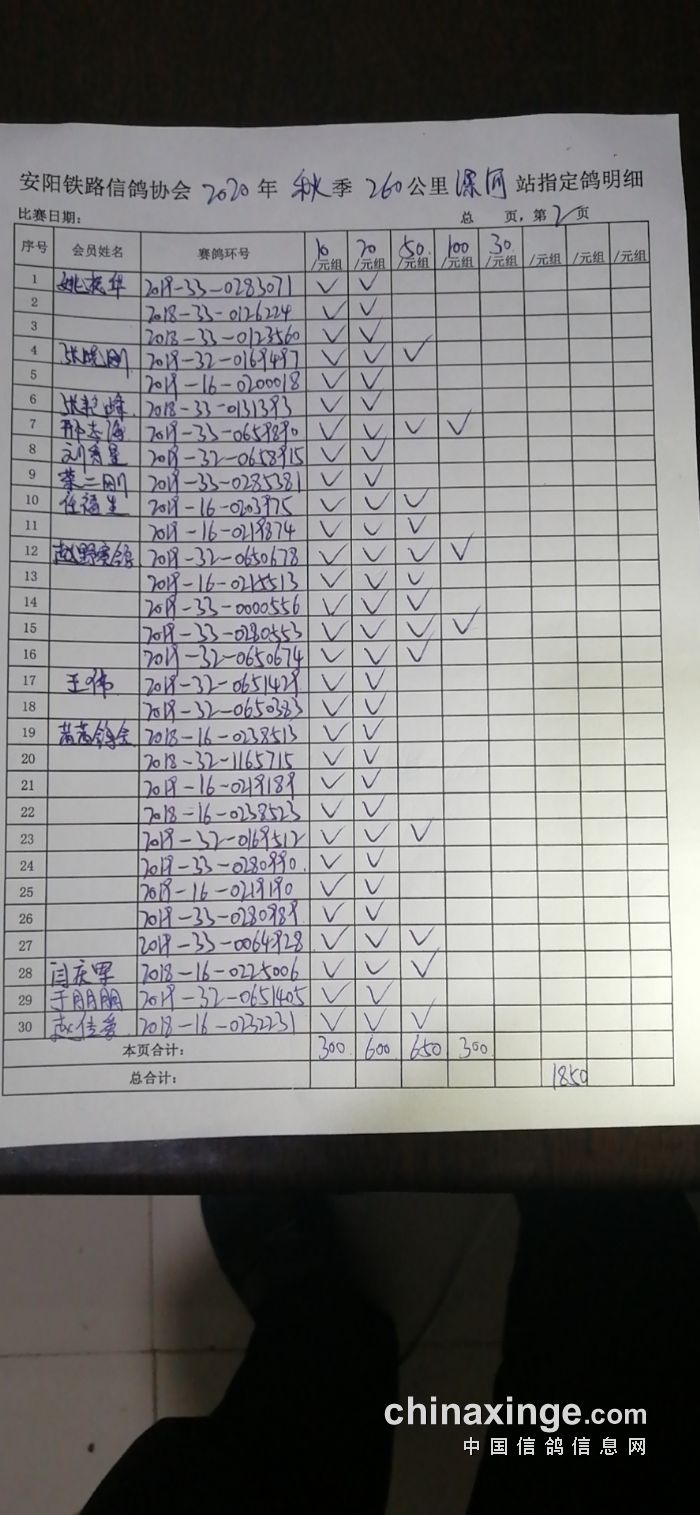 安阳铁路信鸽协会 2020 年 秋 季 260 公里 漯河 站指定鸽明细
比赛日期: 总 页,第 2 页
序号 会员姓名 赛鸽环号 10/元组 20/元组 50/元组 100/元组 30/元组 /元组 /元组 /元组
1 姚振华 2019-33-0283071 ✓ ✓
2 2018-33-0126224 ✓ ✓
3 2018-33-0123560 ✓ ✓
4 张晓刚 2019-32-0169497 ✓ ✓ ✓
5 2019-16-0200018 ✓ ✓
6 2018-33-0131393 ✓ ✓
7 邢志海 2019-33-0659890 ✓ ✓ ✓ ✓
8 2019-32-0658915 ✓ ✓
9 荣二刚 2019-33-0285381 ✓ ✓
10 任福生 2019-16-0203975 ✓ ✓ ✓
11 2019-16-0219874 ✓ ✓ ✓
12 赵野赛鸽 2019-32-0650678 ✓ ✓ ✓ ✓
13 2019-16-0215513 ✓ ✓ ✓
14 2019-33-0000556 ✓ ✓ ✓
15 2019-33-0280553 ✓ ✓ ✓ ✓
16 2019-32-0650674 ✓ ✓ ✓
17 王伟 2019-32-0651429 ✓ ✓
18 2019-32-0650383 ✓ ✓
19 2018-16-0238513 ✓ ✓
20 2018-32-1165715 ✓ ✓
21 2019-16-0219189 ✓ ✓
22 2018-16-0238523 ✓ ✓
23 2019-32-0169512 ✓ ✓ ✓
24 2019-33-0280990 ✓ ✓
25 2019-16-0219190 ✓ ✓
26 2019-33-0280989 ✓ ✓
27 2019-33-0064928 ✓ ✓ ✓
28 闫庆军 2018-16-0225006 ✓ ✓ ✓
29 于朋朋 2019-32-0651405 ✓ ✓
30 2018-16-0232231 ✓ ✓ ✓
本页合计: 300 600 650 300
总合计: 1850
chinaxinge.com
中国信鸽信息网